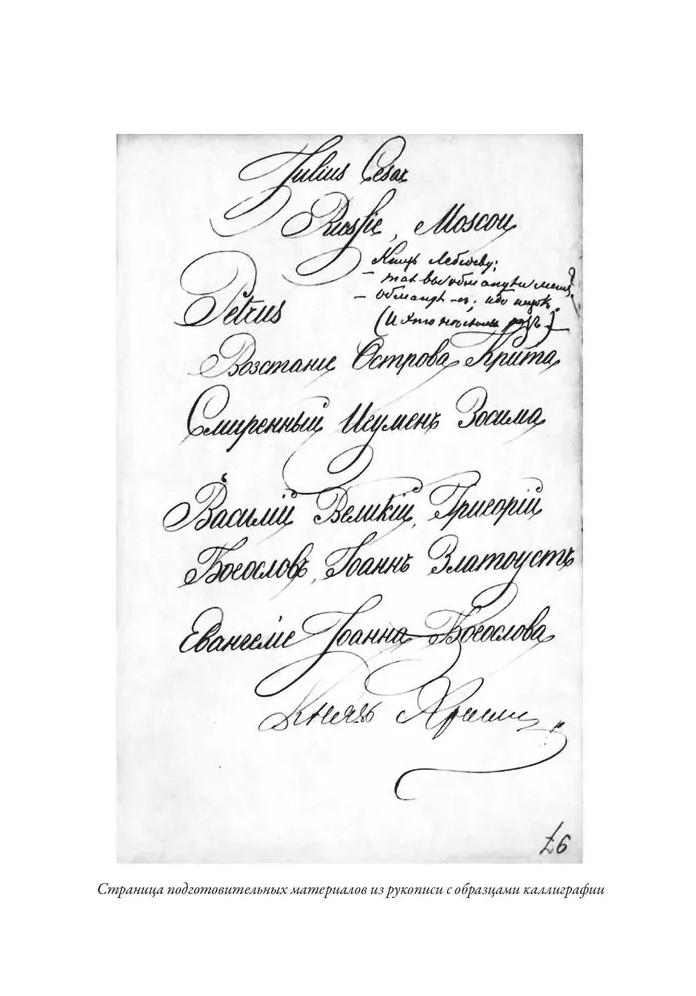 Julius Cesar
Russie, Moscou
Князь Лебедеву:
– так вы обманули меня?
– обманул-съ, ибо низокъ.
Petrus
Возстание Острова Крита
Смиренный Игуменъ Зосима
Василий Великій, Григорій
Богословъ, Іоаннъ Златоустъ
Евангеліе Іоанна Богослова
Князь
Страница подготовительных материалов из рукописи с образцами каллиграфии